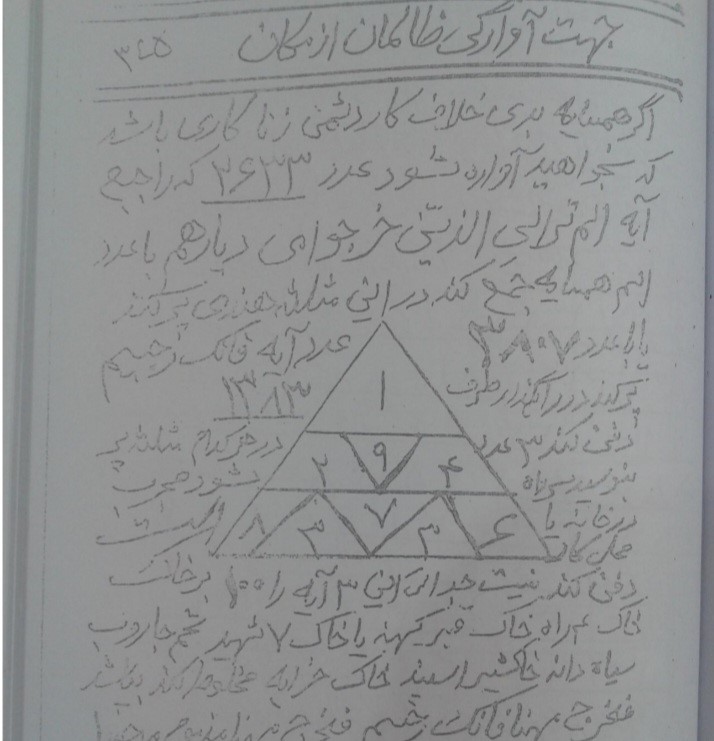 جهت آوارگی ظالمان از مکان ۳۴۵
اگر همسایه بدی خلاف کار دشمن زنا کاری باشد
که بخواهید آواره شود عدد ۲۶۳۳ که راجع
آیه الم ترالی الذین خرجوامن دیارهم باعدد
اسم همسایه جمع کند در این مثلثه هندی پر کند
یا با عدد ۳۸۰۷ عدد آیه فانک رجیم
۱۳۸۳
پر کند در راکند در طرف
۱
دفن کند ۳ عدد در هر کدام مثلثه پر
۲ ۹ ۴
بنویسد سیاه شود مجرب
در خانه یا است
۸ ۳ ۷ ۳ ۶
محل کار
دفن کند نیت جدائی این ۳ آیه را ۱۰۰ بر خاک
خاک ۴ راه خاک قبر کهنه یا خاک ۷ شهید تخم جاروب
سیاه دانه خاکشیر اسپند خاک خرابه مخلوط کند بپاشد
فخرج منها فانک رجیم